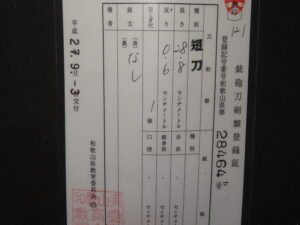 121
銃砲刀剣類登録証
登録記号番号和歌山県第28464号
刀剣類
種別
短刀
長さ
28.8
センチメートル
反り
0.6
センチメートル
目くぎ穴
1個
銘文
(表)なし
(裏)
備考
銃砲
種別
全長
センチメートル
銃身長
口径
センチメートル
平成27.9月-3交付
和歌山県教育委員会